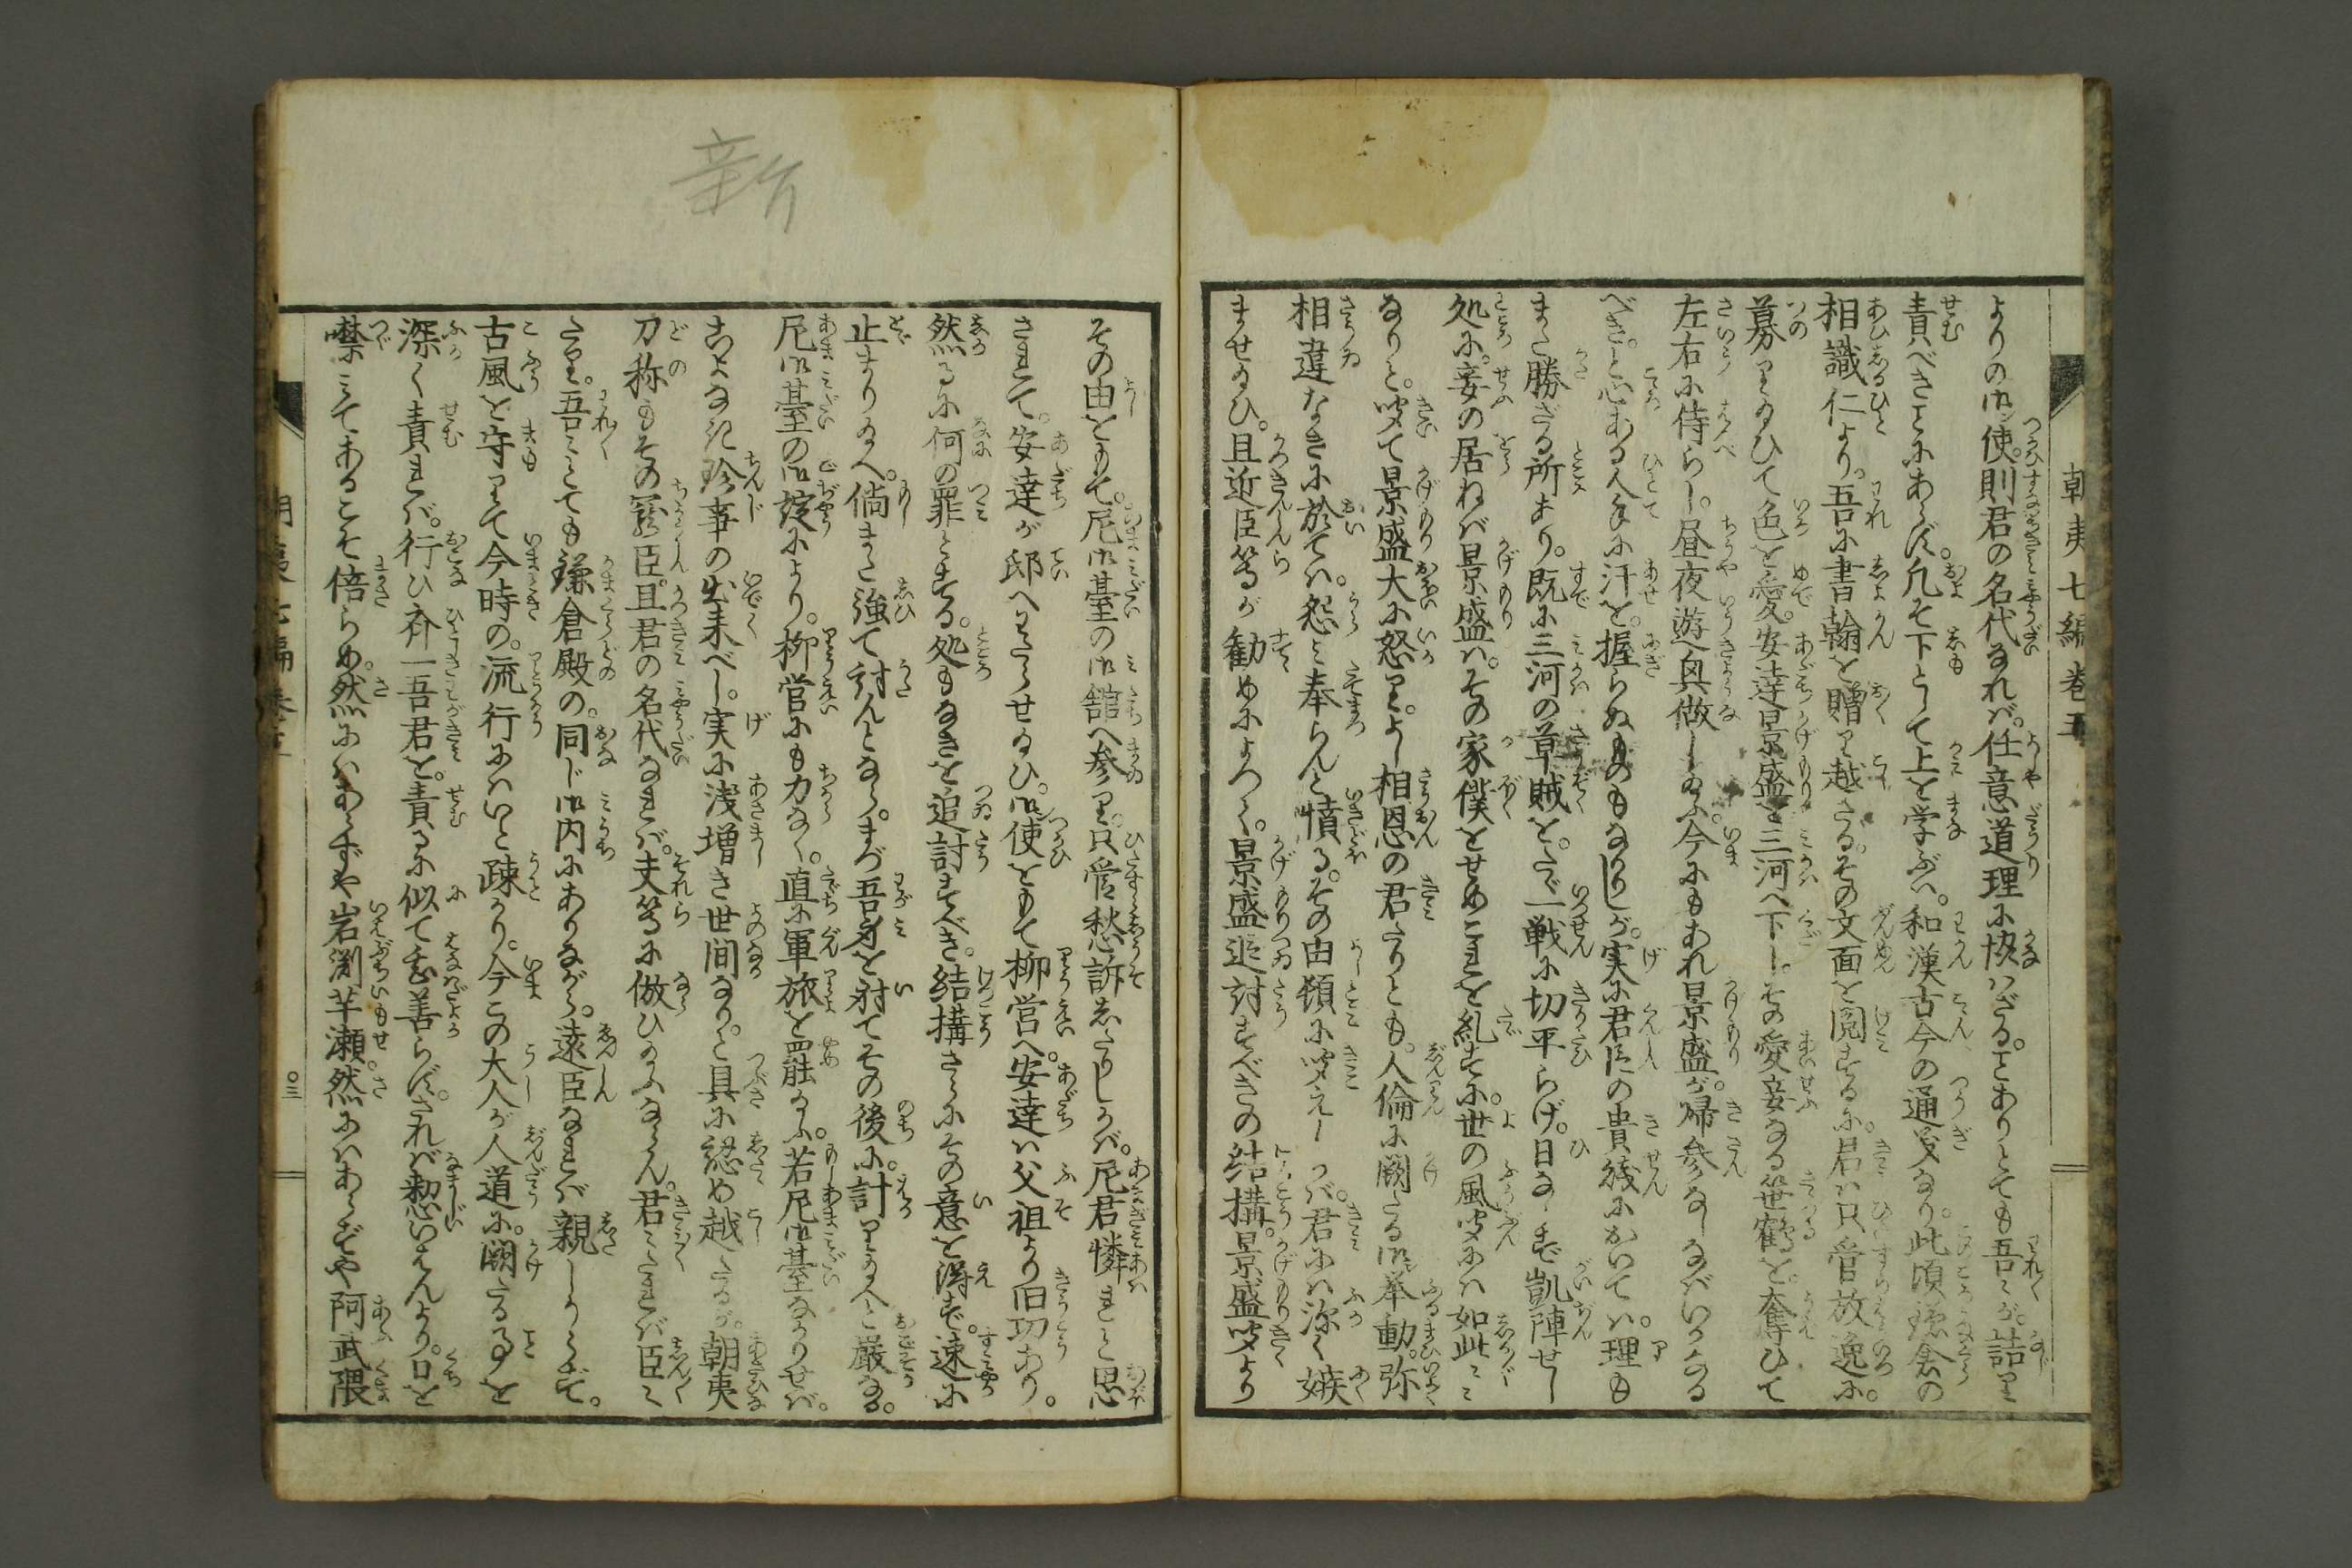 朝夷七編巻五
よりの御使。則君の名代なれバ。任意道理に協ハざる。ことありとても吾々が。詰り
責べきことにあらず。凡そ下として上を学ぶハ。和漢古今の通義なり。此頃鎌倉の
相識仁より。吾に書翰を贈り越たる。その文面を閲するに。君ハ只管放逸に。
募り給ひて色を愛。安達景盛を三河へ下し。その愛妾なる笹鶴を。奪ひて
左右に侍らし。昼夜遊興做し給ふ。今にもあれ景盛が。帰参なしなバいかなる
べき。と心ある人々に汗を。握らぬものもなかりしが。実に君臣の貴賤においてハ。理も
また勝ざる所あり。既に三河の草賊を。たゞ一戦に切平らげ。日ならず凱陣せし
処に。妾の居ねバ景盛ハ。その家僕をせめこれを糺すに。世の風聞にハ如此々々
なりと。聞て景盛大に怒りよし相恩の君たりとも。人倫に闕たる御挙動。弥
相違なきに於てハ。怨み奉らんと憤る。その由頓に聞えしかバ。君にハ深く嫉
ませ給ひ。且近臣等が勧めによつて。景盛追討すべきの結構。景盛聞より
その由をもて。尼御台の御館へ参り。只管愁訴したりしかバ。尼君憐れと思
されて。安達が邸へわたらせ給ひ。御使をもて柳営へ。安達ハ父祖より旧功あり。
然るに何の罪とする。処もなきを追討すべき。結構さらにその意を得ず。速に
止まり給へ。倘また強て討んとなら。まづ吾身を射てその後に。計り給へと厳なる。
尼御台の御諚により。柳営にも力なく。直に軍旅を罷給ふ。若尼御台なかりせバ。
こよなき珍事の出来べし。実に浅増き世間なり。と具に認め越たるが。朝夷
刀称もその寵臣。且君の名代なれバ。夫等に倣ひ給ふならん。君々たれバ臣々
たり。吾々とても鎌倉殿の。同じ御内にありながら。遠臣なれバ親しからず。
古風を守りて今時の。流行にハいと疎かり。今この大人が人道に。闕たる事を
深く責れバ。行ひ斉一吾君を。責るに似て甚善らず。されバ憖いはんより。口を
噤みてあるこそ倍らめ。然にハあらずや岩渕芋瀬。然にハあらずや阿武隈
朝夷七編巻五
〇三
新